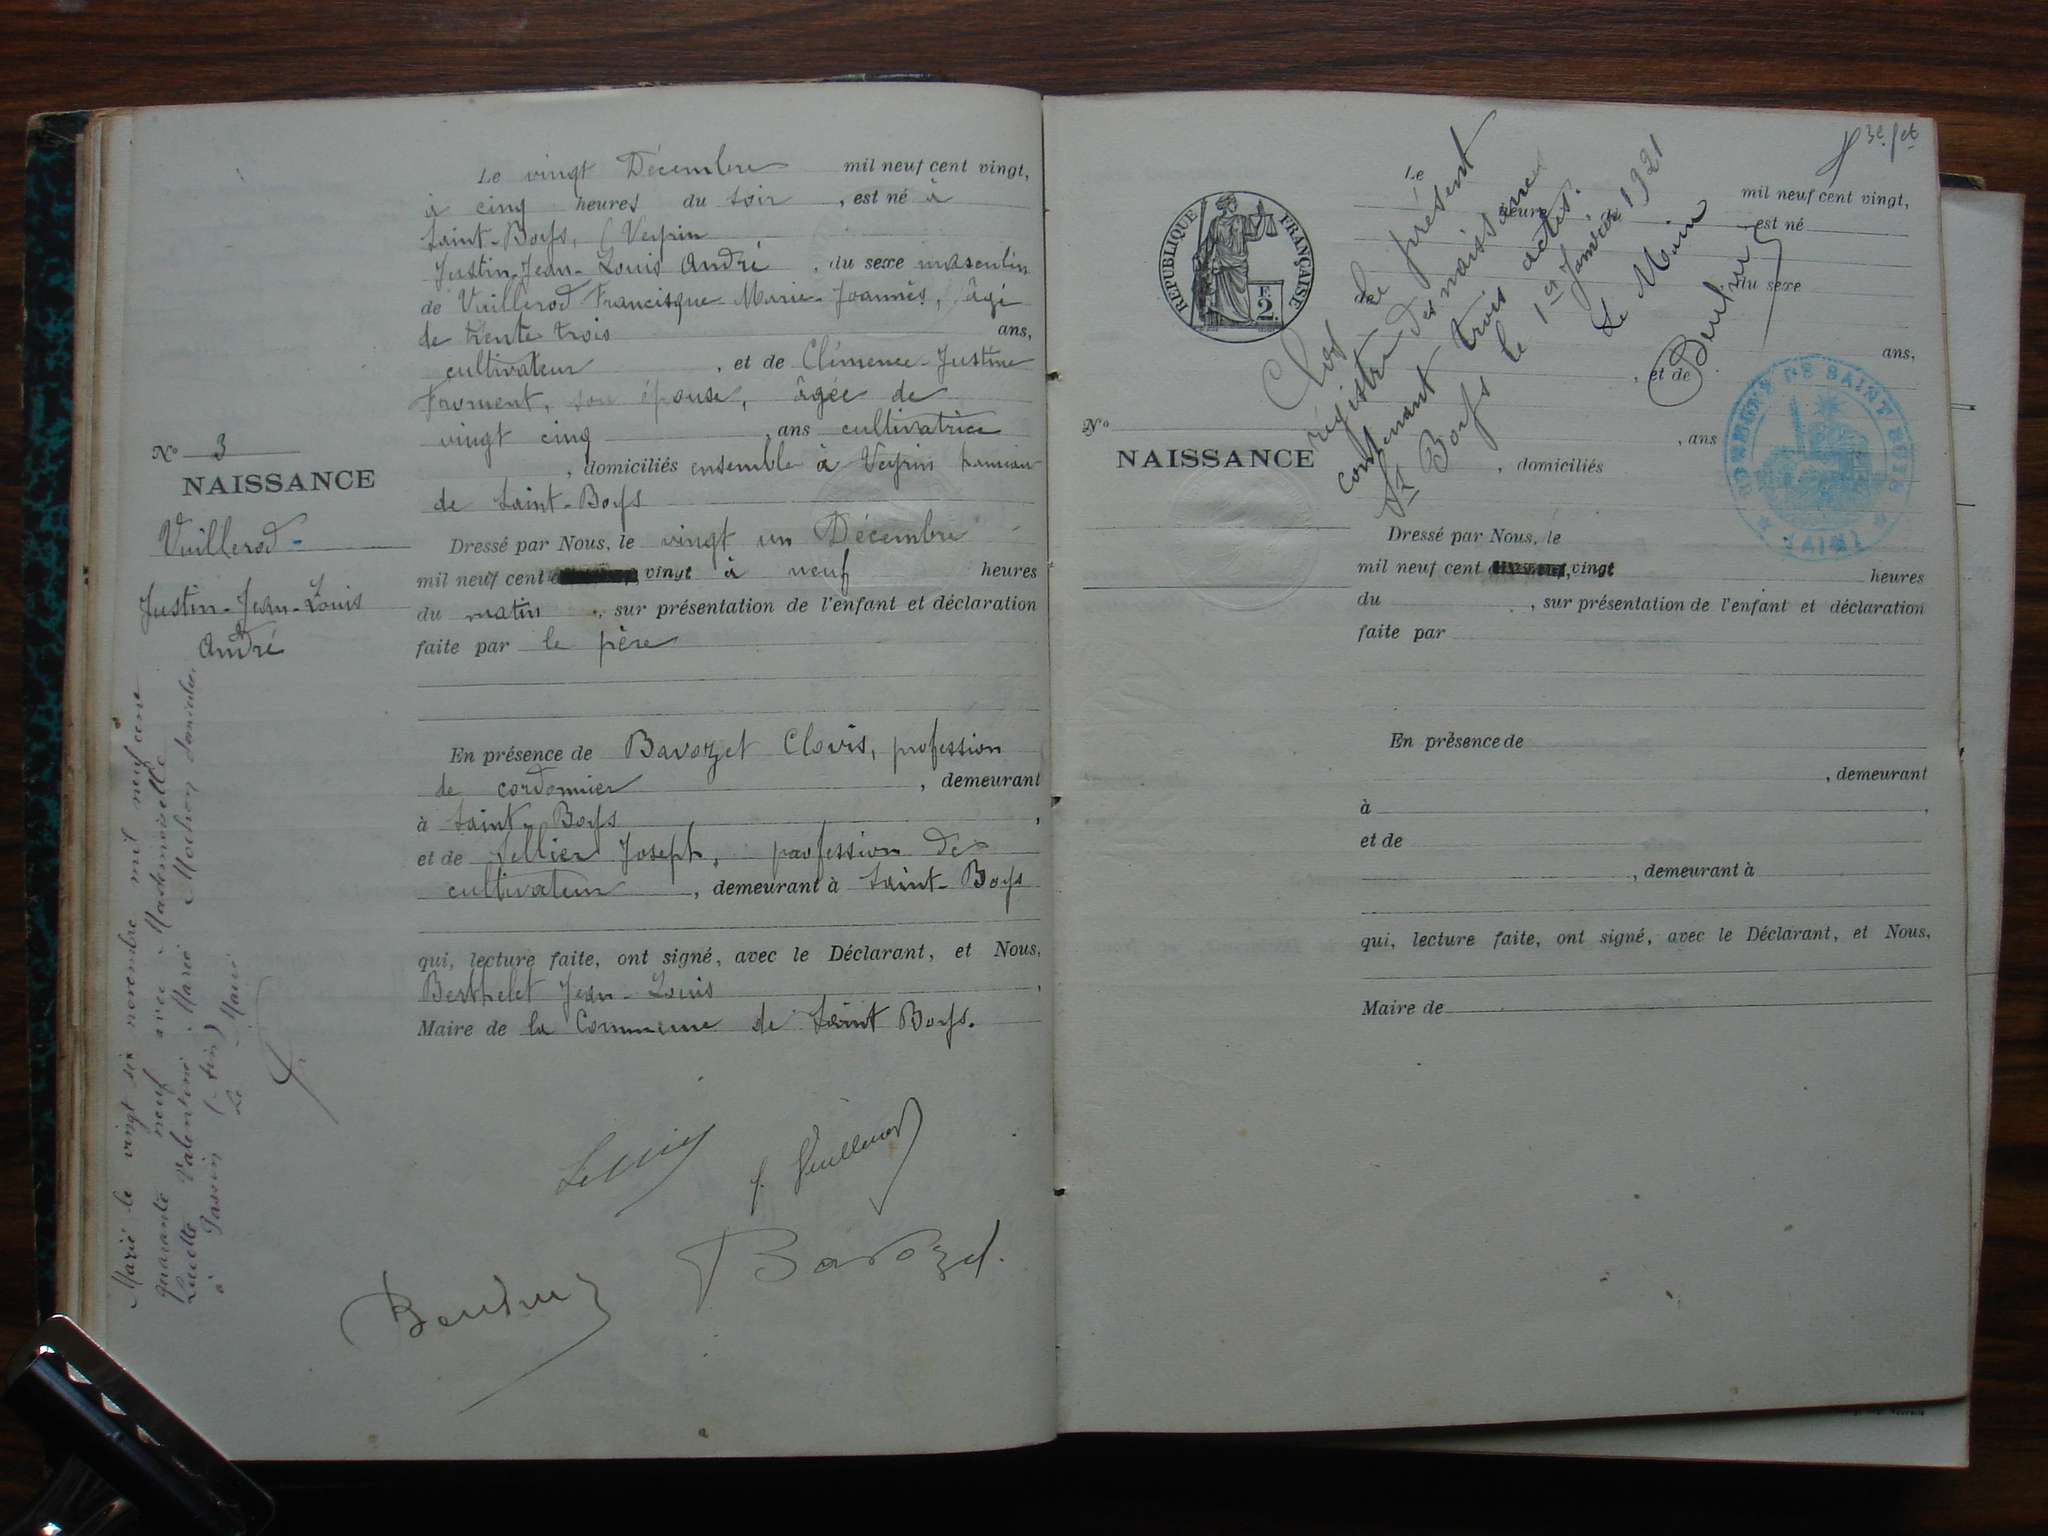 Le vingt Décembre mil neuf cent vingt,
à cinq heures du soir, est né à
Saint-Boys, (Veyrin
Justin-Jean-Louis André, du sexe masculin
de Vuillerod Francisque-Marie-Joannès, âgé
de trente trois ans,
cultivateur, et de Clémence-Justine
Froment, son épouse, âgée de
vingt cinq ans cultivatrice
, domiciliés ensemble à Veyrin hameau
de Saint-Boys
Dressé par Nous, le vingt un Décembre
mil neuf cent vingt à neuf heures
du matin, sur présentation de l'enfant et déclaration
faite par le père
En présence de Bavozet Clovis, profession
de cordonnier, demeurant
à Saint-Boys,
et de Tellier Joseph, profession de
cultivateur, demeurant à Saint-Boys
qui, lecture faite, ont signé, avec le Déclarant, et Nous,
Berthelet Jean-Louis,
Maire de la Commune de Saint Boys.
f. Vuillerod
Bavozet.
N° 3
NAISSANCE
Vuillerod
Justin-Jean-Louis
André
Marié le vingt six novembre mil neuf cent
quarante neuf avec Mademoiselle
Lucette Valentine Marie Mochon domiciliée
à
Le Maire
3e. fet
RÉPUBLIQUE FRANÇAISE
F.
2.
Clos le présent
régistre des naissances
contenant trois actes.
St Boys le 1er Janvier 1921
Le Maire
Le mil neuf cent vingt,
heure , est né
, du sexe
de
ans,
, et de
, ans
, domiciliés
N°
NAISSANCE
Dressé par Nous, le
mil neuf cent vingt heures
du , sur présentation de l'enfant et déclaration
faite par
En présence de
, demeurant
à ,
et de
, demeurant à
qui, lecture faite, ont signé, avec le Déclarant, et Nous,
Maire de
(AIN)